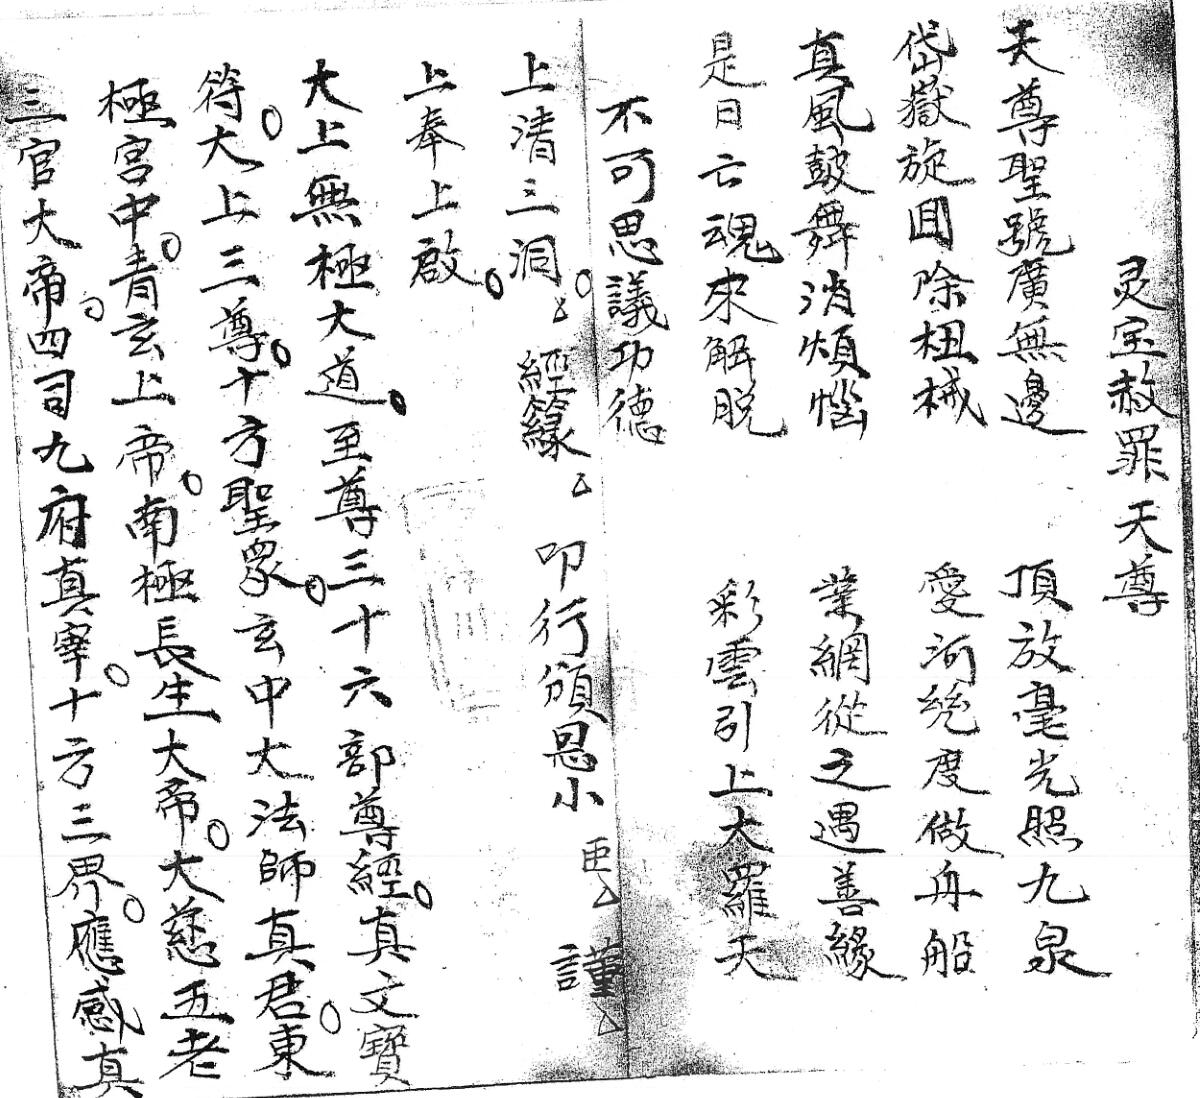 灵宝赦罪天尊
天尊聖號廣無邊　頂放毫光照九泉
岱嶽旋囬除杻械　愛河統度做舟船
真風鼓舞消煩惱　業網從之遇善緣
是日亡魂來解脱　彩雲引上大羅天
不可思議功德
上清三洞　經籙　叩行頒恩小臣　謹
上奉上啟
大上無極大道至尊三十六部尊經真文寶
符大上三尊十方聖眾玄中大法師真君東
極宮中青玄上帝南極長生大帝大慈五老
三官大帝四司九府真宰十方三界應感真